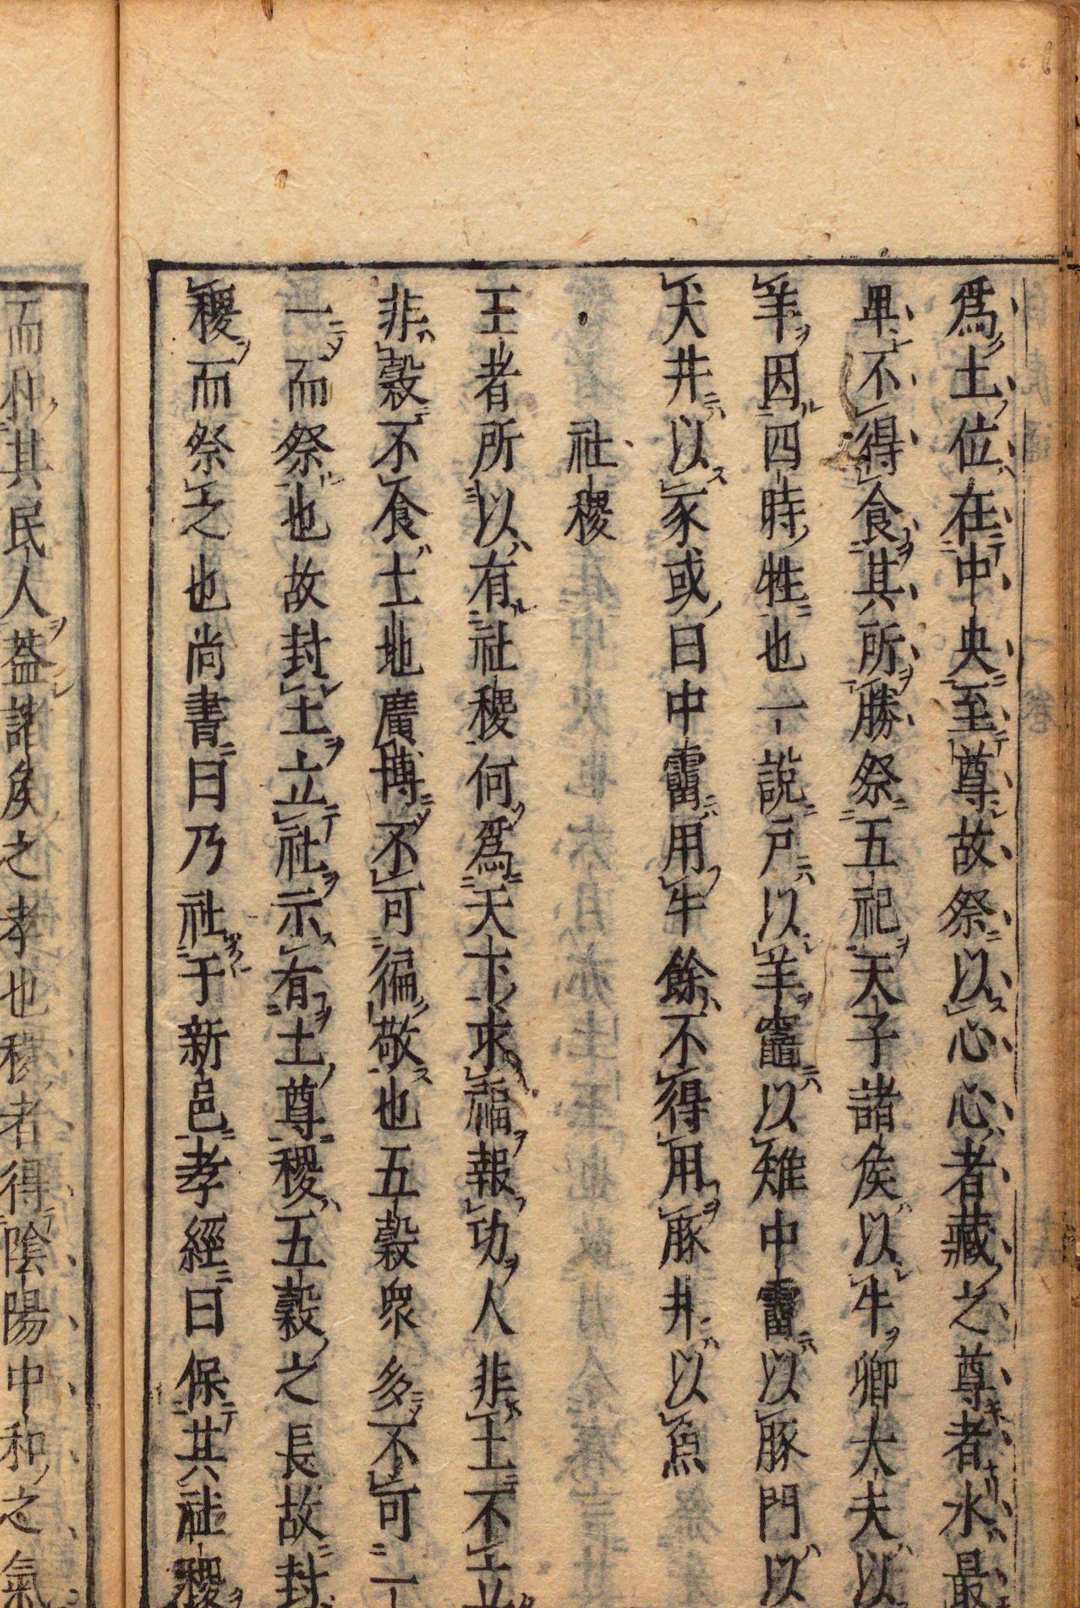 爲土位在中央至尊故祭以心心者藏之尊者水最
卑不得食其所勝祭五祀天子諸侯以牛卿大夫以
羊因四時牲也一說戶以羊竈以雉中霤以豚門以
犬井以豕或曰中霤用牛餘不得用豚井以魚
社稷
王者所以有社稷何爲天下求福報功人非土不立
非穀不食土地廣博不可徧敬也五穀衆多不可一
一而祭也故封土立社示有土尊稷五穀之長故封
稷而祭之也尚書曰乃社于新邑孝經曰保其社稷
而和其民人葢諸侯之孝也稷者得陰陽中和之氣